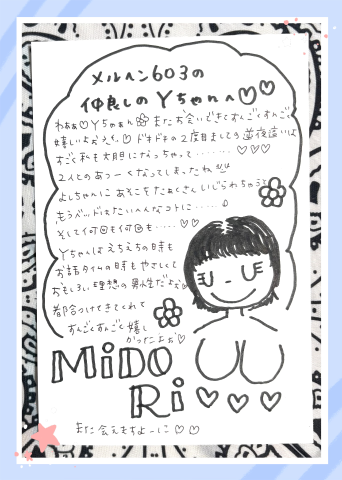 メルヘン603の
仲良しのYちゃんへ♡♡
わぁぁ♡Yちゃぁんまたお会いできてすんごくすんごく
嬉しいよおえぇ♡ドキドキの2度目ましての逆夜這いは
すごく私も大胆になっちゃって……… ♡♡♡
2人とのあつーくなってしまったね
よしちゃんにあそこをたぁくさんいじられちゃうと
もうベッドもたいへんなコトに……
そして何回も何回も…… ♡♡
Yちゃんはえちえちの時も
お話タイムの時もやさしくて
おもしろい理想の男性だよお♡
都合つけてきてくれて
すんごくすんごく嬉し
かったよお♡
MiDO
Ri♡♡♡
また会えますよーに♡♡